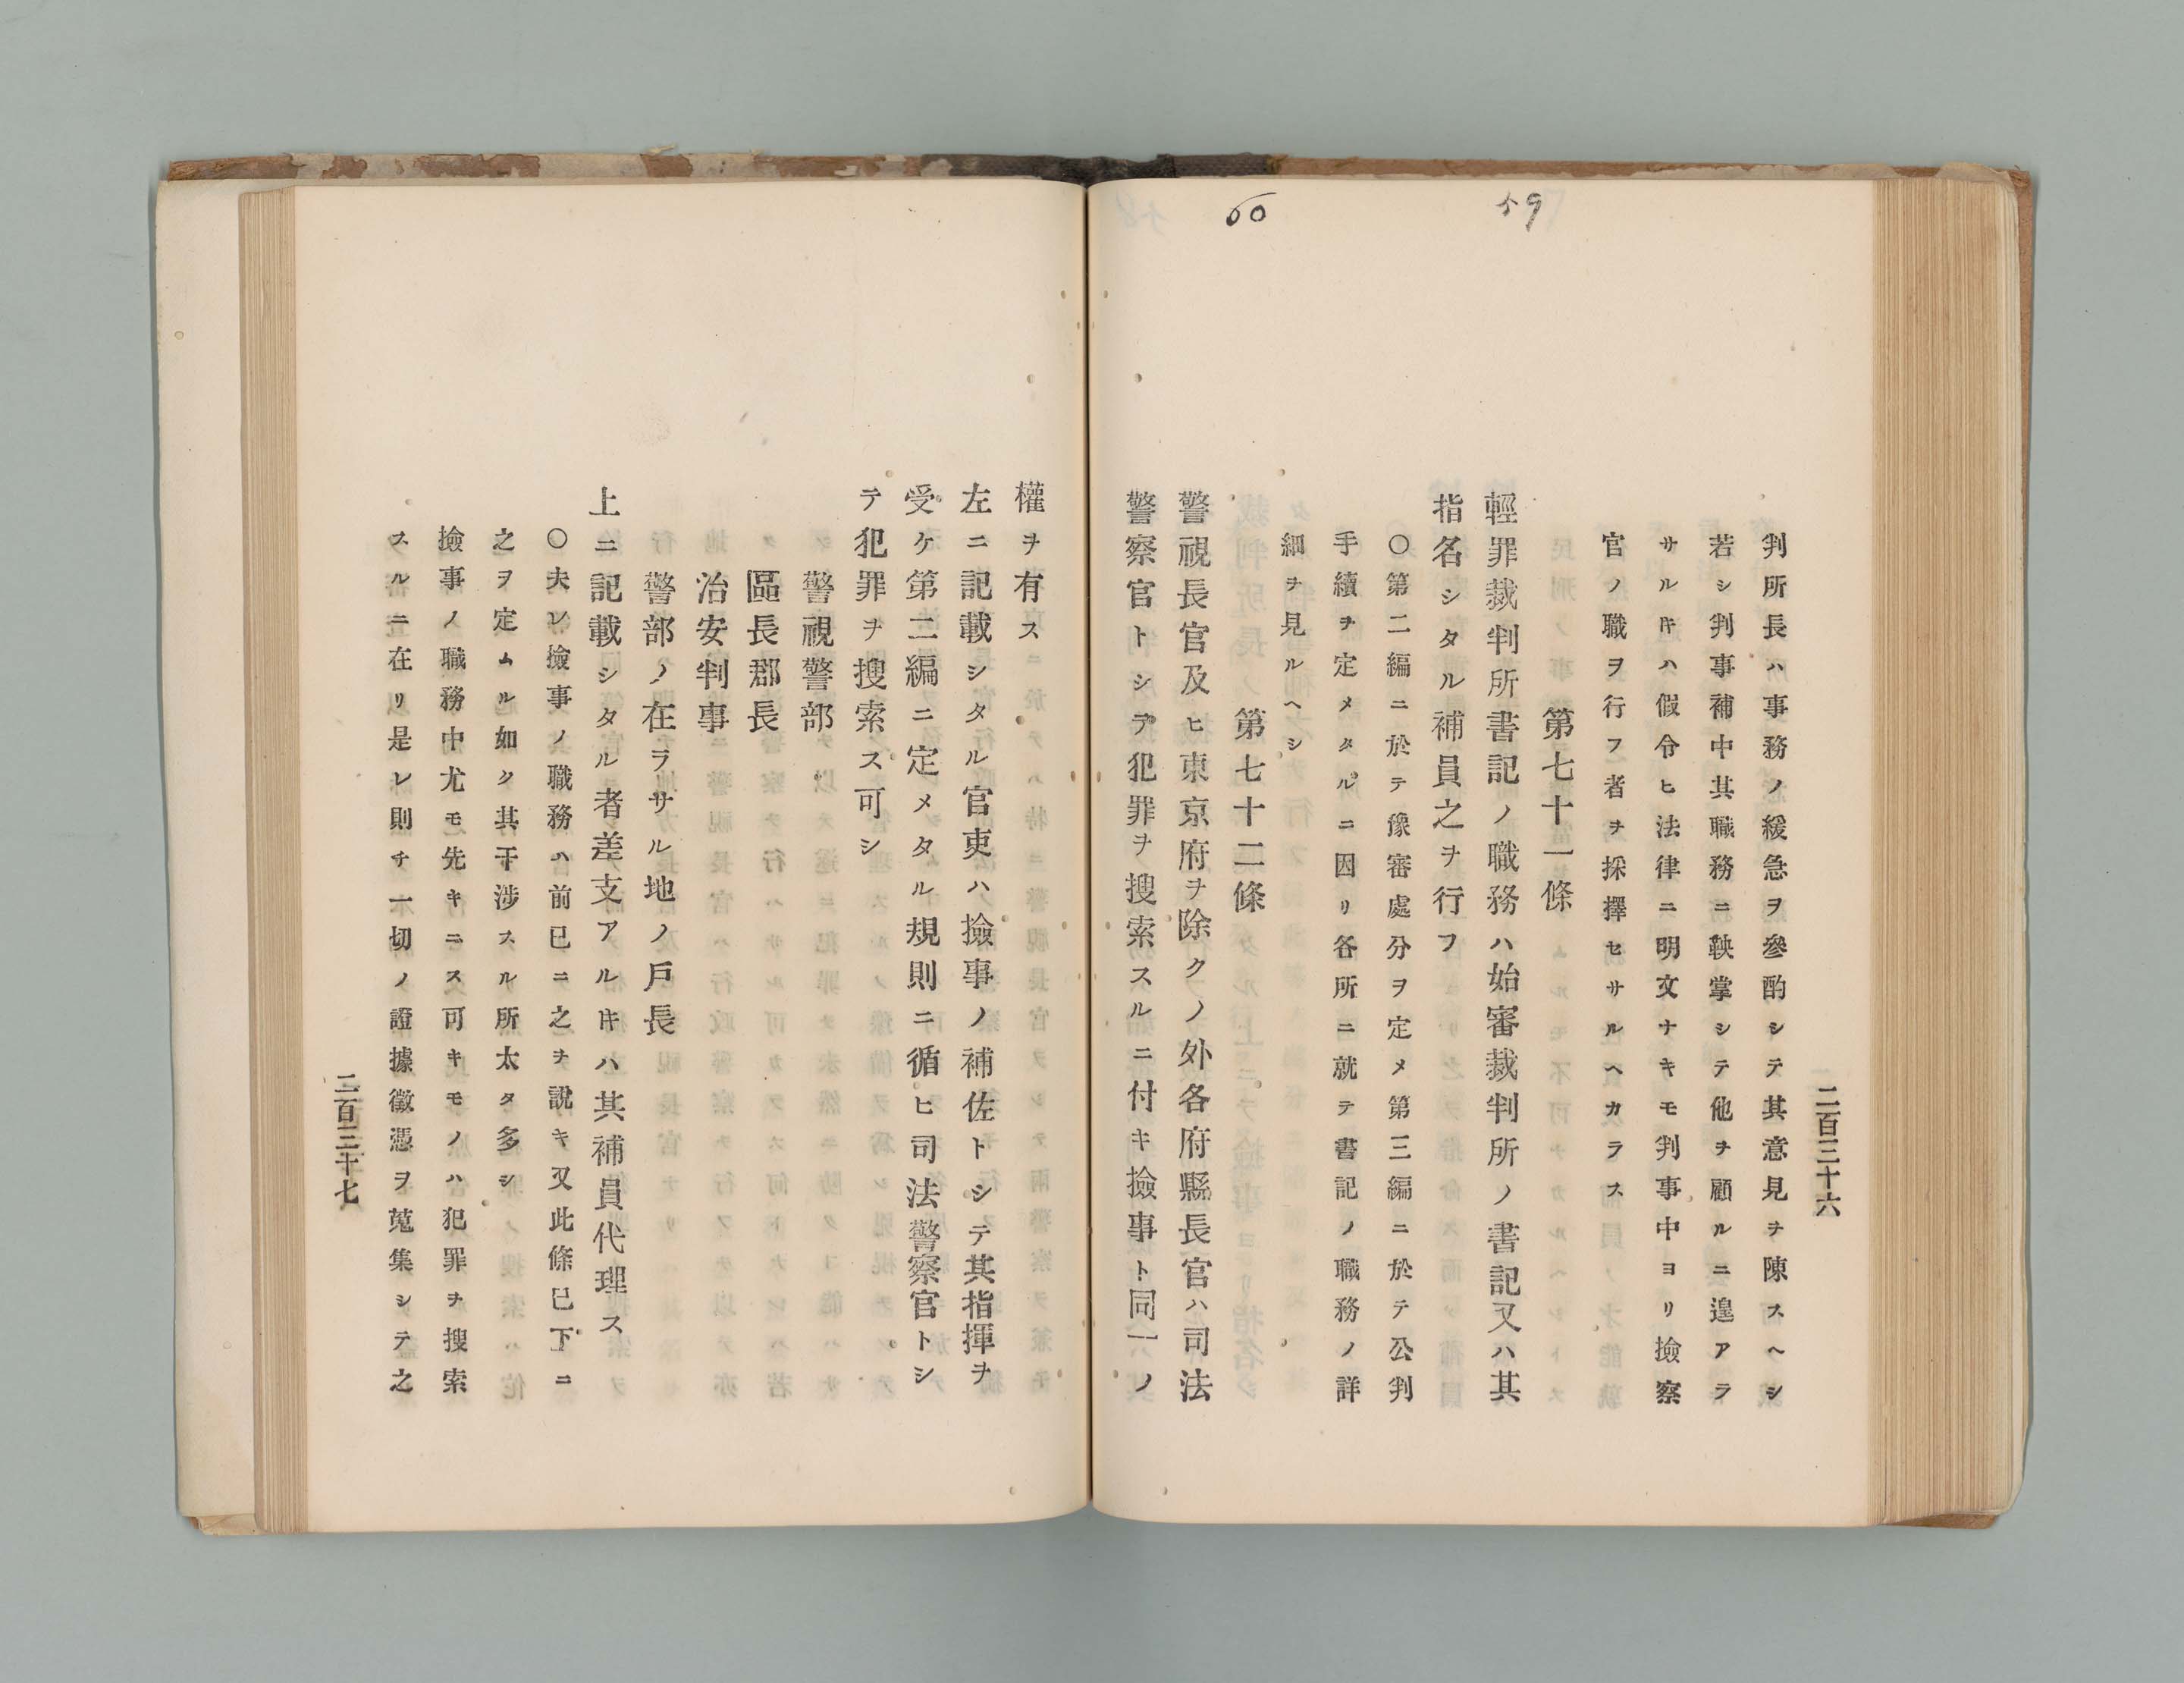 60
59
二百三十六
判所長ハ事務ノ緩急ヲ參酌シテ其意見ヲ陳スヘシ
若シ判事補中其職務ニ鞅掌シテ他ヲ顧ルニ遑アラ
サルキハ假令ヒ法律ニ明文ナキモ判事中ヨリ撿察
官ノ職ヲ行フ者ヲ採擇セサルヘカラス
第七十一條
輕罪裁判所書記ノ職務ハ始審裁判所ノ書記又ハ其
指名シタル補員之ヲ行フ
〇第二編ニ於テ豫審處分ヲ定メ第三編ニ於テ公判
手續ヲ定メタルニ因リ各所ニ就テ書記ノ職務ノ詳
細ヲ見ルヘシ
第七十二條
警視長官及ヒ東京府ヲ除クノ外各府縣長官ハ司法
警察官トシテ犯罪ヲ搜索スルニ付キ撿事ト同一ノ
權ヲ有ス
左ニ記載シタル官吏ハ撿事ノ補佐トシテ其指揮ヲ
受ケ第二編ニ定メタル規則ニ循ヒ司法警察官トシ
テ犯罪ヲ搜索ス可シ
警視警部
區長郡長
治安判事
警部ノ在ラサル地ノ戶長
上ニ記載シタル者差支アルキハ其補員代理ス
〇夫レ撿事ノ職務ハ前已ニ之ヲ說キ又此條已下ニ
之ヲ定ムル如ク其干涉スル所太タ多シ
撿事ノ職務中尤モ先キニス可キモノハ犯罪ヲ搜索
スルニ在リ是レ則チ一切ノ證據徵憑ヲ蒐集シテ之
二百三十七